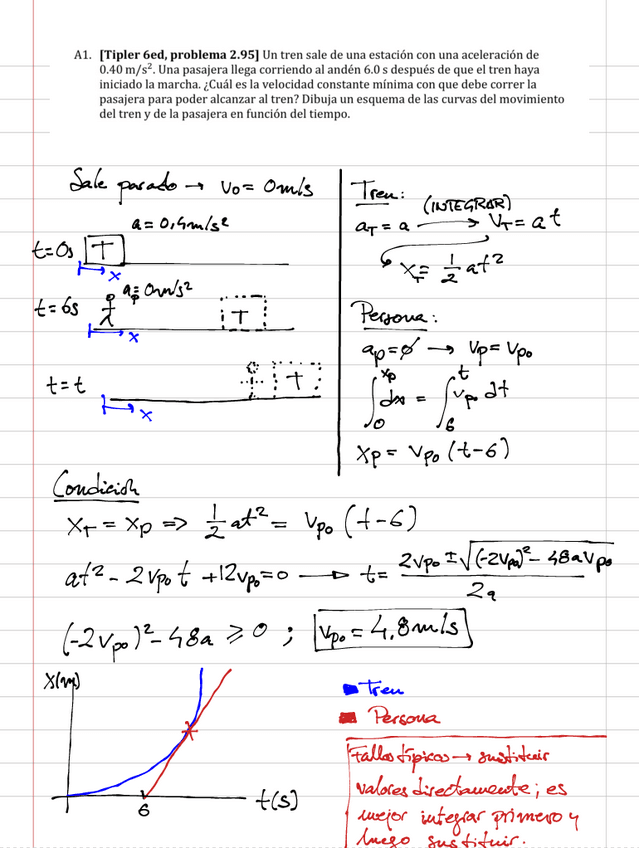 A1. [Tipler 6ed, problema 2.95] Un tren sale de una estación con una aceleración de
0.40 m/s². Una pasajera llega corriendo al andén 6.0 s después de que el tren haya
iniciado la marcha. ¿Cuál es la velocidad constante mínima con que debe correr la
pasajera para poder alcanzar al tren? Dibuja un esquema de las curvas del movimiento
del tren y de la pasajera en función del tiempo.
Sale parado → v₀ = 0m/s
a = 0,4m/s²
t=0s T
x
aₚ=0m/s²
t=6s T
x
t=t T
x
Tren:
(INTEGRAR)
a_T = a → v_T = at
x_T = 1/2 at²
Persona:
aₚ=∅ → vₚ=vₚ₀
∫₀^xₚ dx = ∫₆^t vₚ₀ dt
xₚ = vₚ₀ (t-6)
Condición
x_T = xₚ => 1/2 at² = vₚ₀ (t-6)
at² - 2vₚ₀t + 12vₚ₀=0 → t = (2vₚ₀ ± √((-2vₚ₀)² - 48avₚ₀)) / 2a
(-2vₚ₀)² - 48a ≥ 0 ; vₚ₀ = 4,8m/s
x(m)
6
t(s)
Tren
Persona
Fallos típicos → sustituir
valores directamente; es
mejor integrar primero y
luego sustituir.